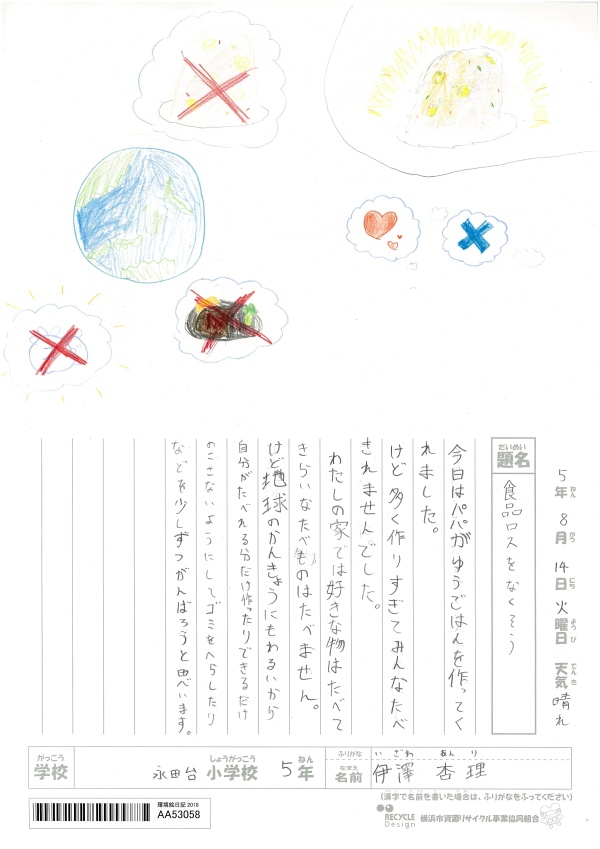 5年ねん 8月がつ 14日にち 火曜日ようび 天気てんき 晴れ
だいめい
題名
食品ロスをなくそう
今日はパパがゆうごはんを作ってく
れました。
けど多く作りすぎてみんなたべ
きれませんでした。
わたしの家では好きな物はたべて
きらいなたべものはたべません。
けど地球のかんきょうにもわるいから
自分がたべれる分だけ作ったりできるだけ
のこさないようにしてゴミをへらしたり
などを少しずつがんばろうと思います。
がっこう
学校
永田台 小学校しょうがっこう 5年ねん
ふりがな いざわ あんり
なまえ
名前 伊澤 杏理
(漢字で名前を書いた場合は、ふりがなをふってください)
環境絵日記 2018
AA53058
RECYCLE Design 横浜市資源リサイクル事業協同組合